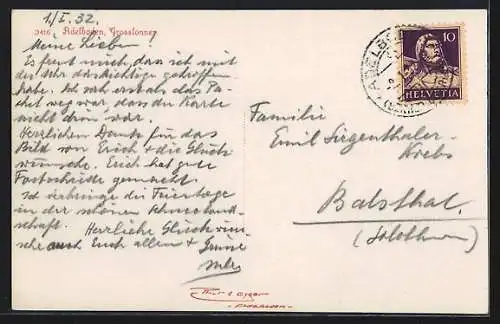 1/I. 32.
3416 Adelboden, Grosslohner
Meine Lieben!
Es freut mich dass ich mit
der Uhr das richtige getroffen
habe. Ich sah erst als das Pa-
ket weg war, dass die Karte
nicht drin war.
Herzlichen Dank für das
Bild von Erich & die Glück-
wünsche. Erich hat gute
Fortschritte gemacht.
Ich verbringe die Feiertage
in der schönen Schneeland-
schaft. Herzliche Glückwün-
sche auch Euch allen & Grüsse
10
HELVETIA
ADELBODEN
Familie
Emil Siegenthaler-
Krebs
Balsthal.
(Solothurn)
ADELBODEN